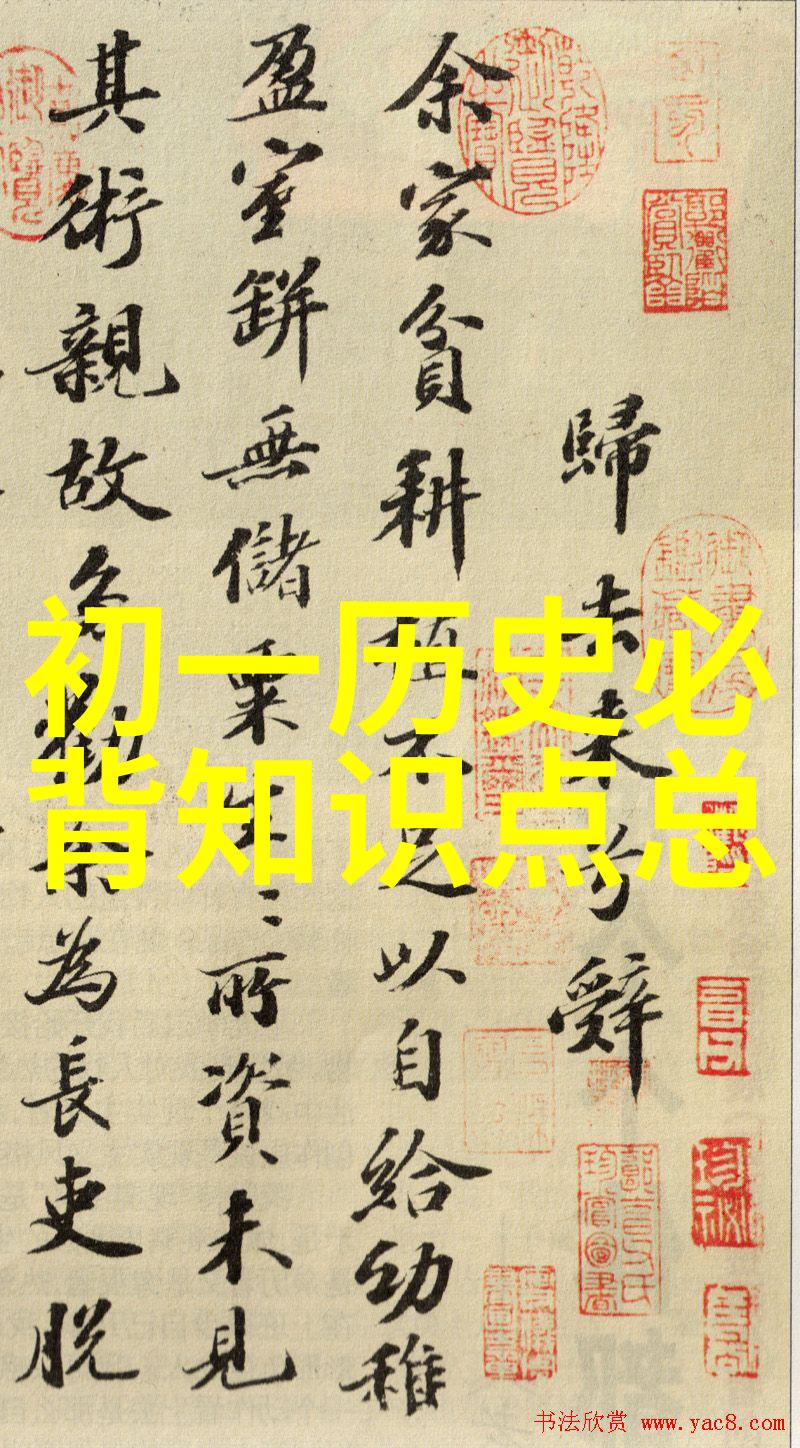 初一历史必
背知识点总
歸去来兮辭
余家貧耕植不足以自給幼稚
盈室缾無儲粟生〻所資未見
其術親故多勸余為長吏脱
书法欣赏 www.yac8.com